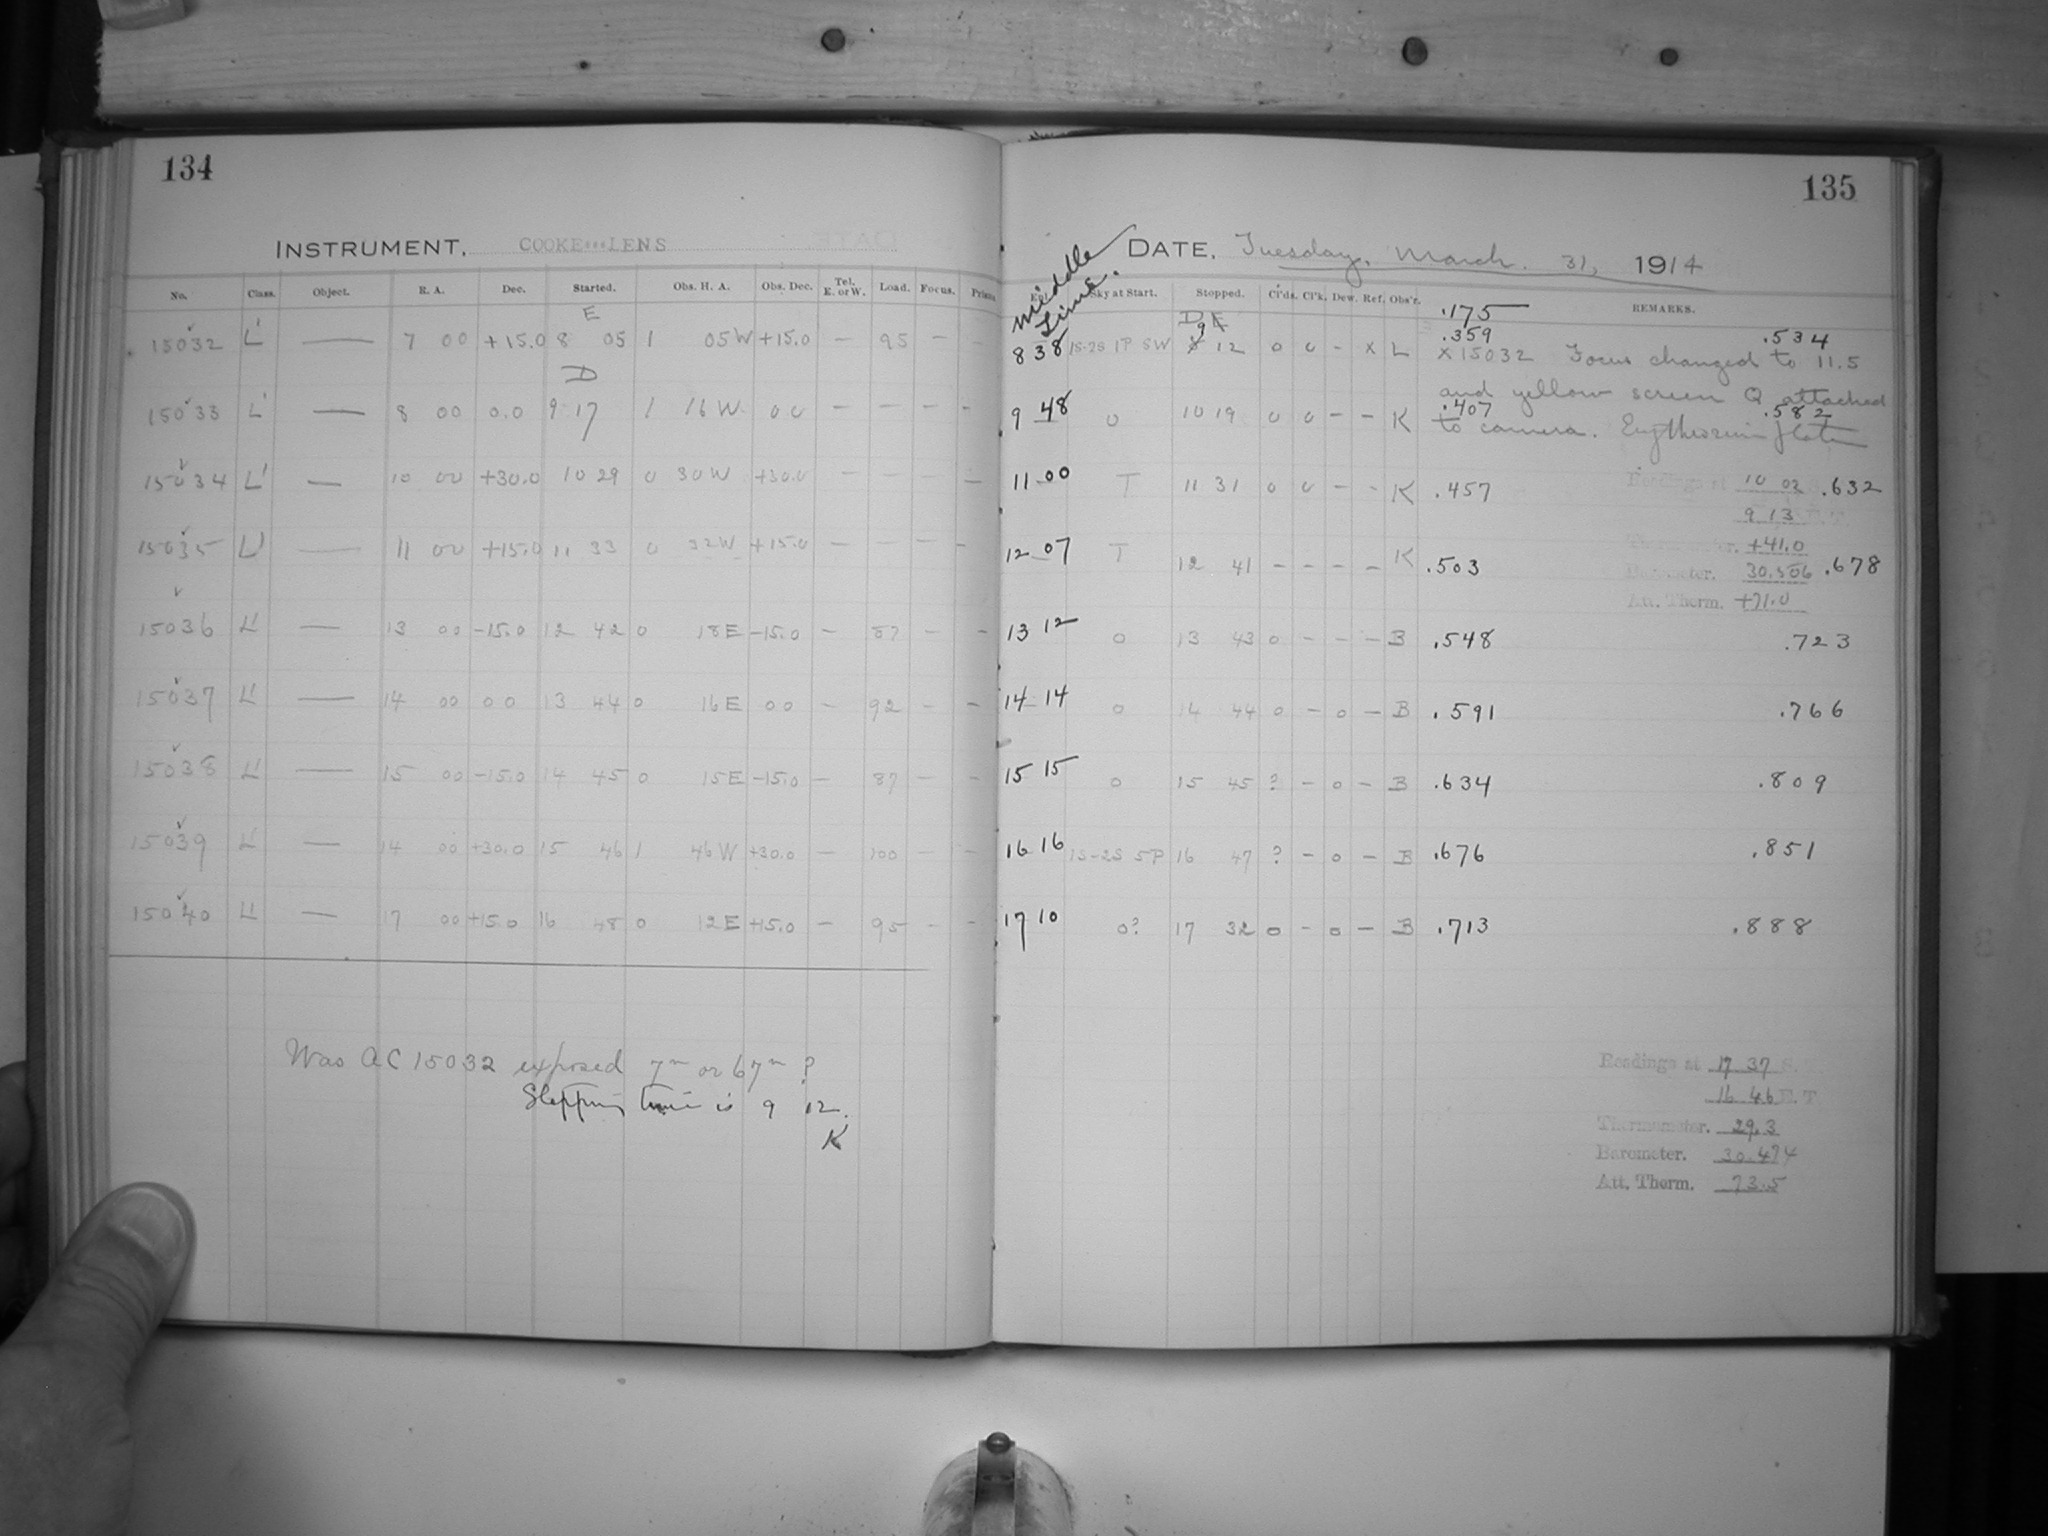 134
INSTRUMENT. COOKE LENS
No. Class. Object. R. A. Dec. Started. Obs. H. A. Obs. Dec. Tel. E. or W. Load. Focus. Prism.
E
15032 L' — 7 00 +15.0 8 05 1 05 W +15.0 — 95 — —
D
15033 L' — 8 00 0.0 9 17 1 16 W 0 0 — — — —
15034 L' — 10 00 +30.0 10 29 0 30 W +30.0 — — — —
15035 L' — 11 00 +15.0 11 33 0 32 W +15.0 — — — —
15036 L' — 13 00 -15.0 12 42 0 18 E -15.0 — 87 — —
15037 L' — 14 00 0 0 13 44 0 16 E 0 0 — 92 — —
15038 L' — 15 00 -15.0 14 45 0 15 E -15.0 — 87 — —
15039 L' — 14 00 +30.0 15 46 1 46 W +30.0 — 100 — —
15040 L' — 17 00 +15.0 16 48 0 12 E +15.0 — 95 — —
Was AC 15032 exposed 7m or 67m ?
Stopping time is 9 12.
K
135
DATE. Tuesday, March 31, 1914
Middle Time.
Sky at Start. Stopped. Cl'ds. Cl'k. Dew. Ref. Obs'r. REMARKS.
.175
D 9
.359 .534
8 38 1S-2S 1P SW 8 12 0 0 - X L X 15032 Focus changed to 11.5
and yellow screen Q attached
.407 .582
9 48 0 10 19 0 0 — — K to camera. plate
11 00 T 11 31 0 0 - - K .457 Readings at 10 02 .632
9 13 E. T.
12 07 T 12 41 - - - - K .503 Thermometer. +41.0
Barometer. 30.506 .678
Att. Therm. +71.0
13 12 0 13 43 0 - - - B .548 .723
14 14 0 14 44 0 - 0 - B .591 .766
15 15 0 15 45 ? - 0 - B .634 .809
16 16 1S-2S 5P 16 47 ? - 0 - B .676 .851
17 10 0? 17 32 0 - 0 - B .713 .888
Readings at 17 37 S.
16 46 E. T
Thermometer. 29.3
Barometer. 30.474
Att. Therm. 73.5